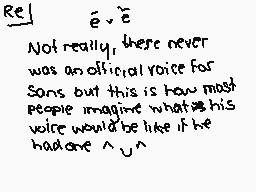 Re
ē v ě
Not really, there never
was an official voice for
Sans but this is how most
people imagine what his
voice would be like if he
had one ^ u ^